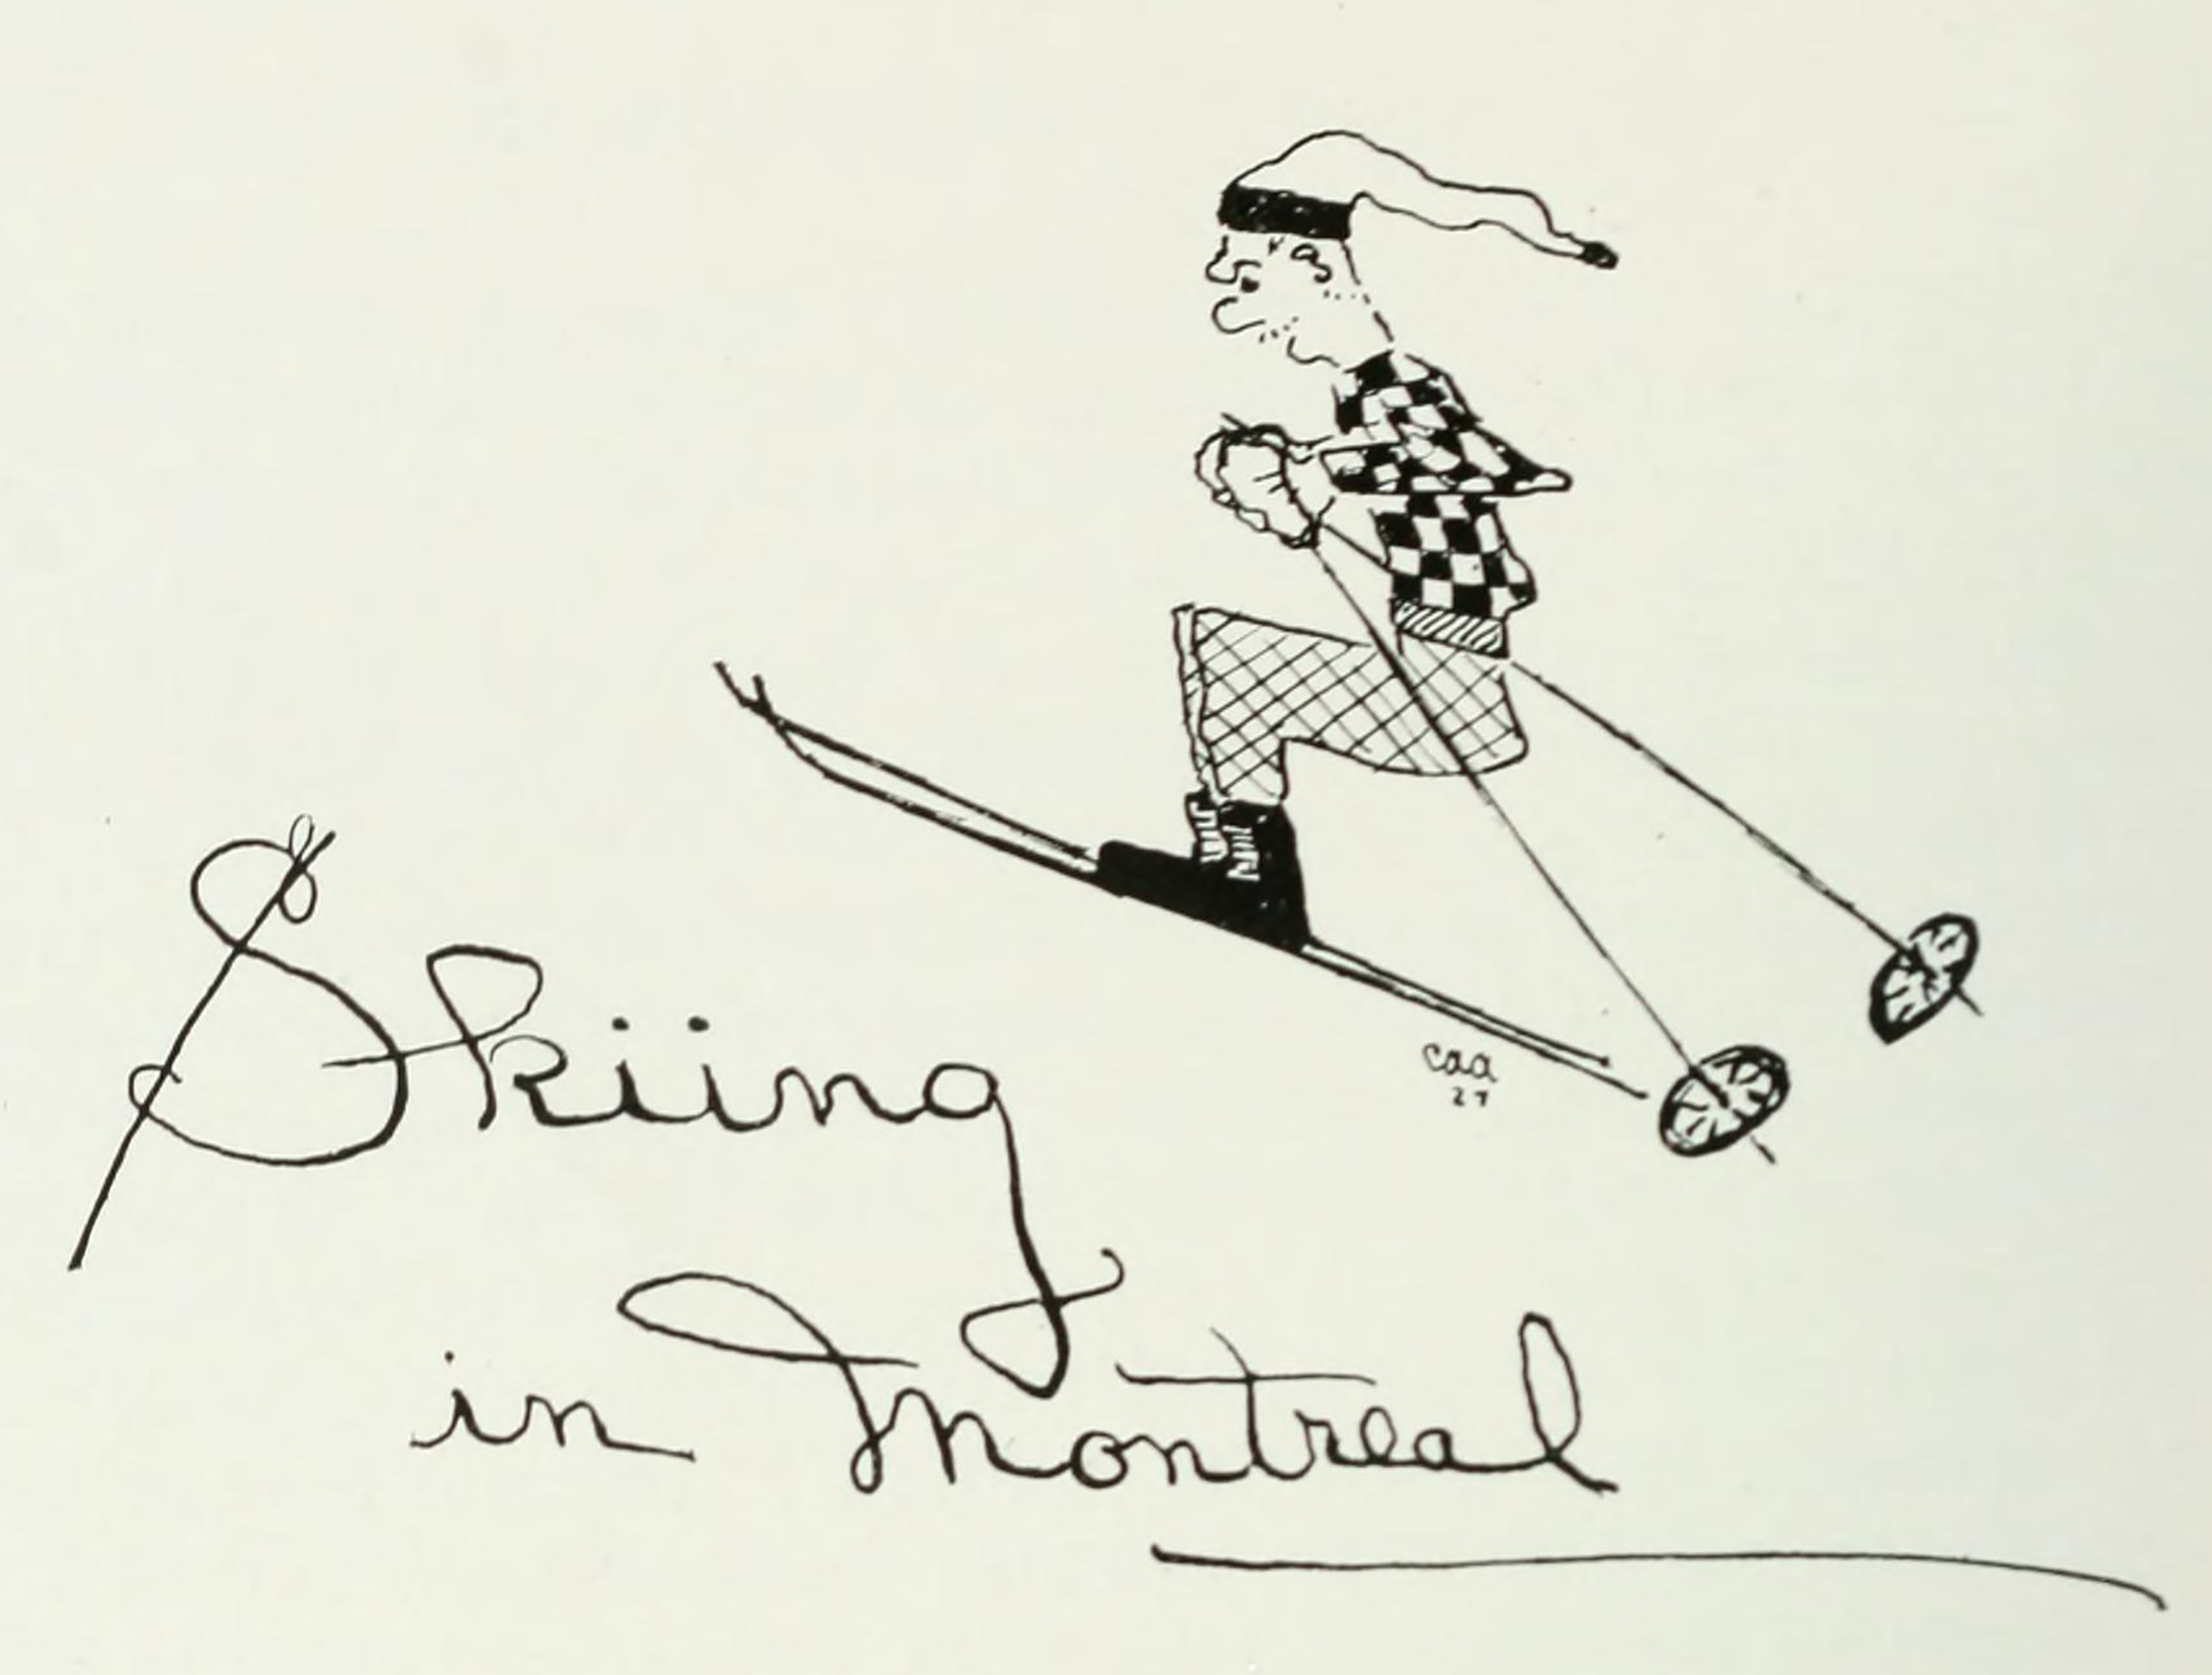 caa
27
Skiing
in Montreal